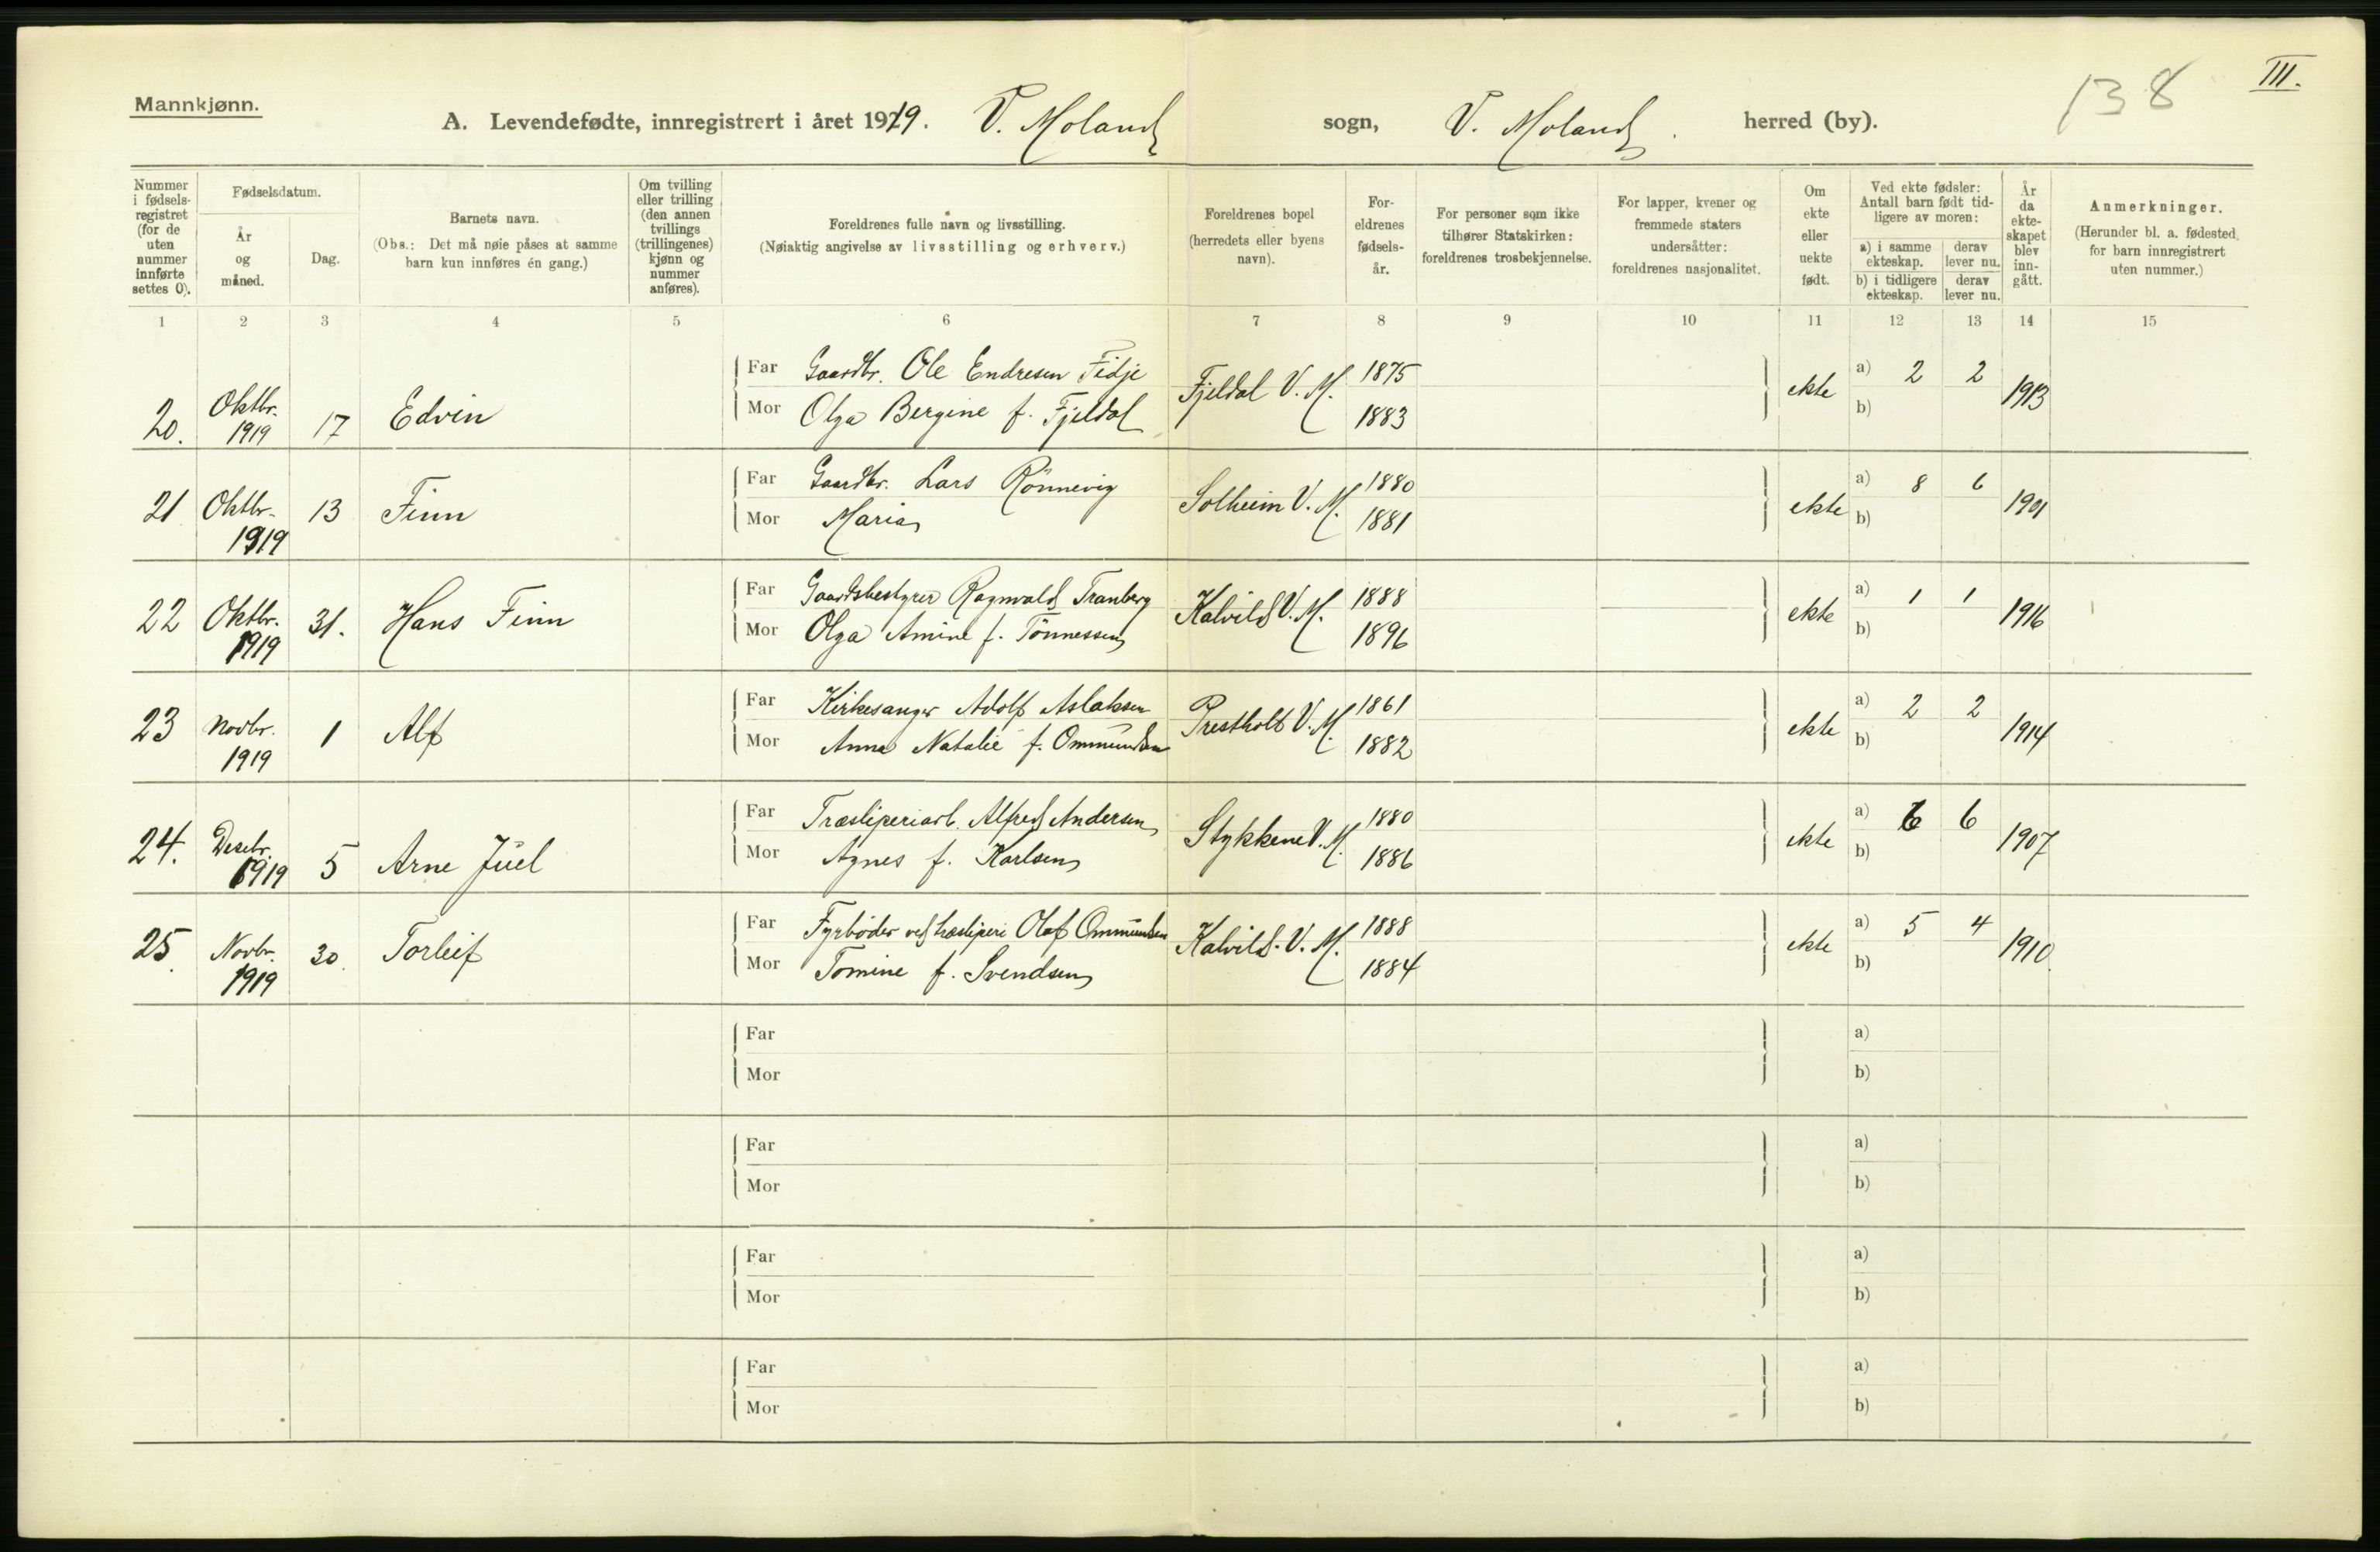 Mannkjønn.
III.
138
A. Levendefødte, innregistrert i året 1919. V. Moland sogn, V. Moland. herred (by).
Nummer i fødsels-registret (for de uten nummer innførte settes 0).
Fødselsdatum.
År og måned.
Dag.
Barnets navn.
(Obs.: Det må nøie påses at samme barn kun innføres én gang.)
Om tvilling eller trilling (den annen tvillings (trillingenes) kjønn og nummer anføres).
Foreldrenes fulle navn og livsstilling.
(Nøiaktig angivelse av livsstilling og erhverv.)
Foreldrenes bopel (herredets eller byens navn).
For-eldrenes fødsels-år.
For personer som ikke tilhører Statskirken: foreldrenes trosbekjennelse.
For lapper, kvener og fremmede staters undersåtter: foreldrenes nasjonalitet.
Om ekte eller uekte født.
Ved ekte fødsler: Antall barn født tid-ligere av moren:
a) i samme ekteskap. derav lever nu.
b) i tidligere ekteskap. derav lever nu.
År da ekte-skapet blev inn-gått.
Anmerkninger.
(Herunder bl. a. fødested for barn innregistrert uten nummer.)
1 2 3 4 5 6 7 8 9 10 11 12 13 14 15
20. Oktbr. 1919 17 Edvin
Far Gaardbr. Ole Endresen Fidje Fjeldal V. M. 1875 ekte a) 2 2 1913
Mor Olga Bergine f. Fjeldal 1883 b)
21 Oktbr. 1919 13 Finn
Far Gaardbr. Lars Rönnevig Solheim V. M. 1880 ekte a) 8 6 1901
Mor Maria 1881 b)
22 Oktbr. 1919 31. Hans Finn
Far Gaardsbestyrer Ragnvald Tranberg Kalvild V. M. 1888 ekte a) 1 1 1916
Mor Olga Amine f. Tönnessen 1896 b)
23 Novbr. 1919 1 Alf
Far Kirkesanger Adolf Aslaksen Prestholt V. M. 1861 ekte a) 2 2 1914
Mor Anna Natalie f. Ommundsen 1882 b)
24. Desbr. 1919 5 Arne Juel
Far Træsliperiarb. Alfred Andersen Stykkene V. M. 1880 ekte a) 6 6 1907
Mor Agnes f. Karlsen 1886 b)
25 Novbr. 1919 30. Torleif
Far Fyrböder ved træsliperi Olaf Ommundsen Kalvild. V. M. 1888 ekte a) 5 4 1910.
Mor Tomine f. Svendsen 1884 b)
Far a)
Mor b)
Far a)
Mor b)
Far a)
Mor b)
Far a)
Mor b)